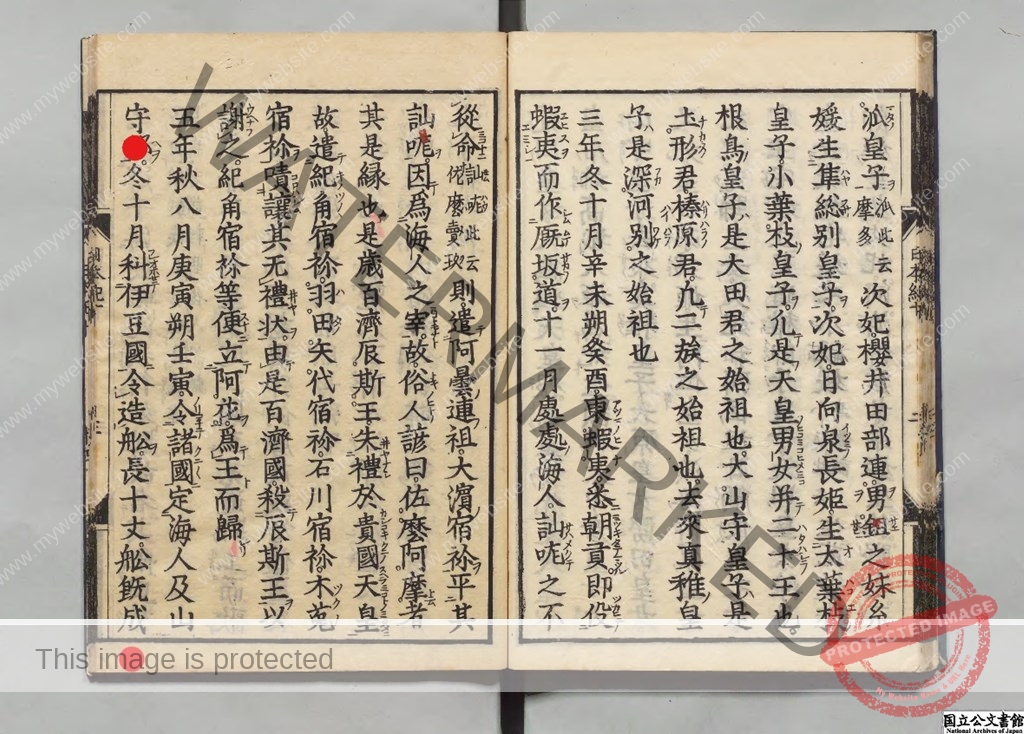 泒皇子泒此云摩多次妃櫻井田部連男鉏之妹糸
媛生隼総别皇子次妃日向泉長姫生大葉枝
皇子小葉枝皇子凢是天皇男女并二十王也
根鳥皇子是大田君之始祖也大山守皇子是
土形君榛原君凢二族之始祖也去來真稚皇
子是深河别之始祖也
三年冬十月辛未朔癸酉東蝦夷悉朝貢即役
蝦夷而作厩坂道十一月處處海人訕哤之不
從命訕哤此云佐麽賣玖則遣阿曇連祖大濵宿祢平其
訕哤因爲海人之宰故俗人諺曰佐麽阿摩者
其是縁也是歳百濟辰斯王失禮於貴國天皇
故遣紀角宿祢羽田矢代宿祢石川宿祢木菟
宿祢嘖讓其无禮状由是百濟國殺辰斯王以
謝之紀角宿祢等便立阿花爲王而歸
五年秋八月庚寅朔壬寅令諸國定海人及山
守冬十月科伊豆國令造舩長十丈舩旣成
日本紀十
二
WATERMARKED
This image is protected
PROTECTED IMAGE
www.mywebsite.com
国立公文書館
National Archives of Japan